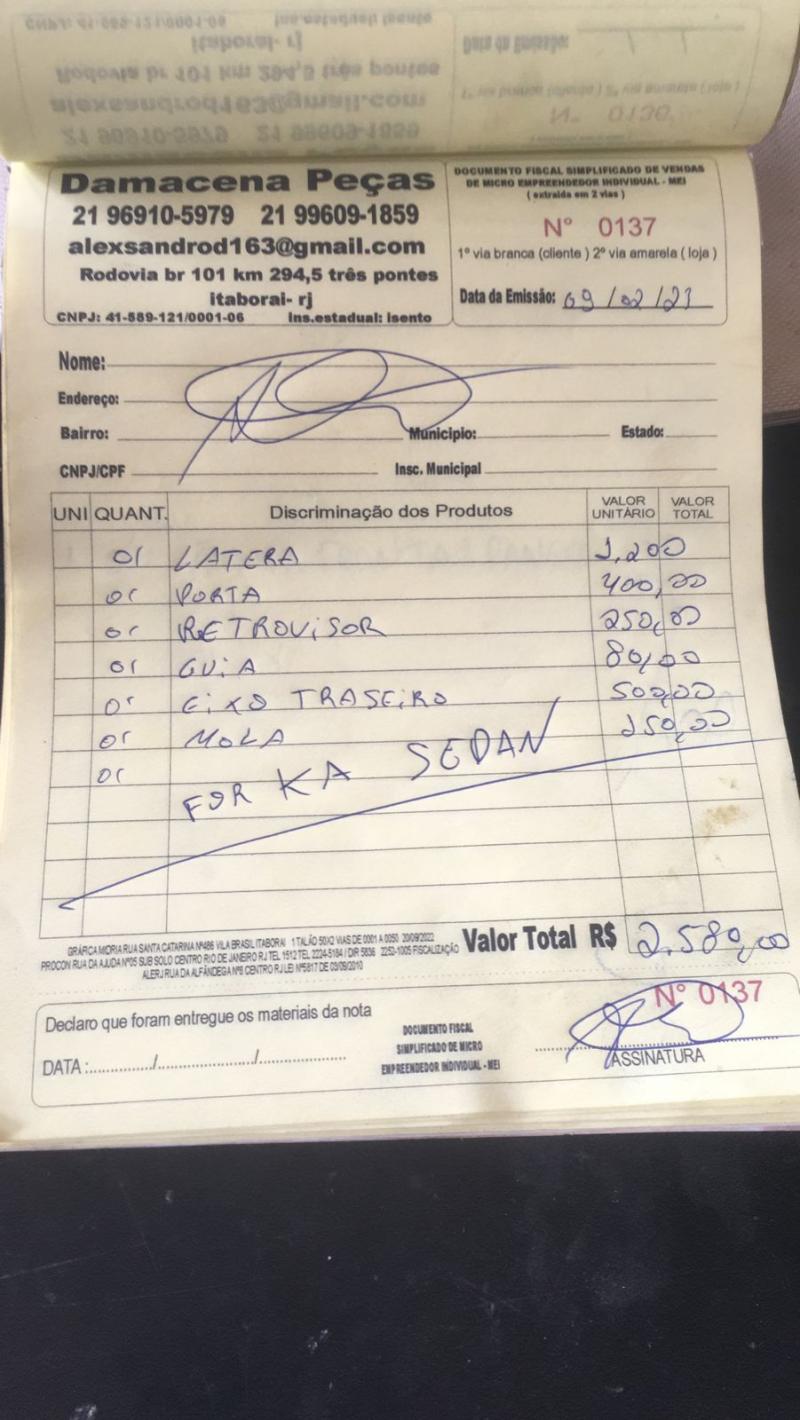 Damacena Peças
21 96910-5979 21 99609-1859
alexsandrod163@gmail.com
Rodovia br 101 km 294,5 três pontes
itaborai- rj
CNPJ: 41-589-121/0001-06 ins.estadual: isento
DOCUMENTO FISCAL SIMPLIFICADO DE VENDAS
DE MICRO EMPREENDEDOR INDIVIDUAL - MEI
( extraida em 2 vias )
N° 0137
1º via branca (cliente ) 2º via amarela ( loja )
Data da Emissão: 09/02/23
Nome:
Endereço:
Bairro: Municipio: Estado:
CNPJ/CPF Insc. Municipal
UNI QUANT. Discriminação dos Produtos VALOR UNITÁRIO VALOR TOTAL
01 LATERA 1,200
01 PORTA 400,00
01 RETROVISOR 250,00
01 GUIA 80,00
01 EIXO TRASEIRO 500,00
01 MOLA 150,00
01
FOR KA SEDAN
Valor Total R$ 2.580,00
GRÁFICA MIDRIA RUA SANTA CATARINA Nº486 VILA BRASIL ITABORAI 1 TALÃO 50X2 VIAS DE 0001 A 0050 20/09/2022
PROCON RUA DA AJUDA Nº05 SUB SOLO CENTRO RIO DE JANEIRO RJ TEL 1512 TEL 2224-5184 / DIR 5836 2252-1005 FISCALIZAÇÃO
ALERJ RUA DA ALFÂNDEGA Nº8 CENTRO RJ LEI Nº5817 DE 03/09/2010
N° 0137
Declaro que foram entregue os materiais da nota
DATA :....../....../......
DOCUMENTO FISCAL
SIMPLIFICADO DE MICRO
EMPREENDEDOR INDIVIDUAL - MEI
ASSINATURA